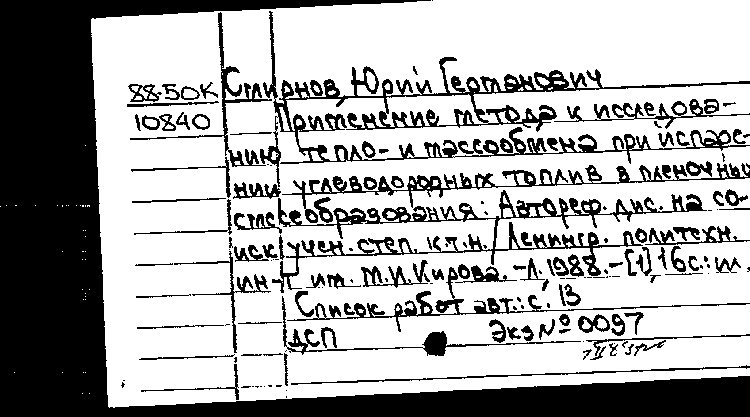 88-50К Смирнов, Юрий Германович
10840 Применение метода к исследова-
нию тепло- и массообмена при испаре-
нии углеводородных топлив в пленочных
смесеобразования: Автореф. дис. на со-
иск. учен. степ. к.т.н. / Ленингр. политехн.
ин-т им. М.И. Кирова. -Л. 1988. -[1], 16с.: ил.
Список работ авт.: с. 13
ДСП Экз № 0097